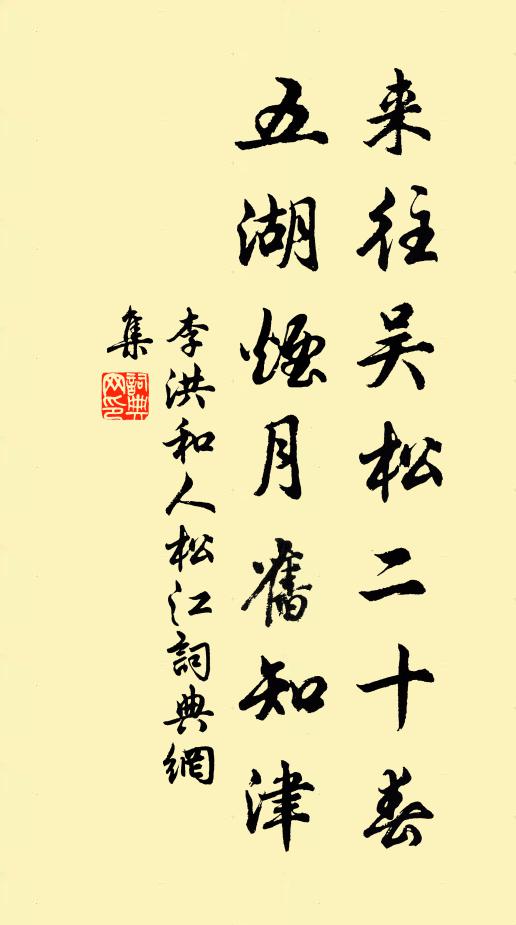 来往吴松二十春
五湖煙月舊知津
李洪和人松江詞典網
集
詞典网印